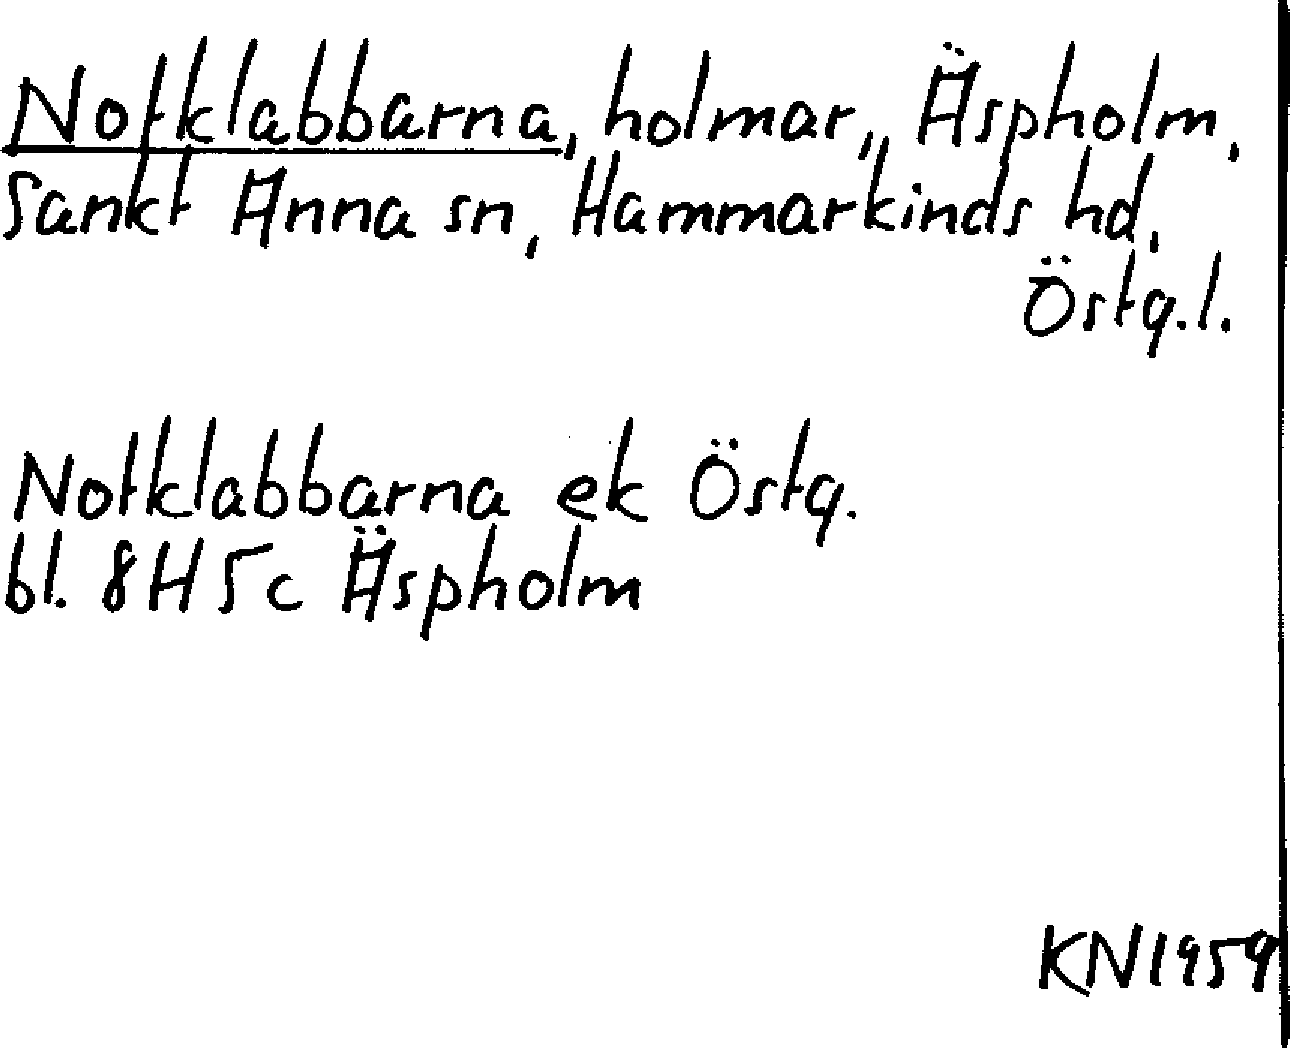 Notklabbarna, holmar,, Äspholm,
Sankt Anna sn, Hammarkinds hd,
Östg.l.
Notklabbarna ek Östg.
bl. 8H5c Äspholm
KN1959